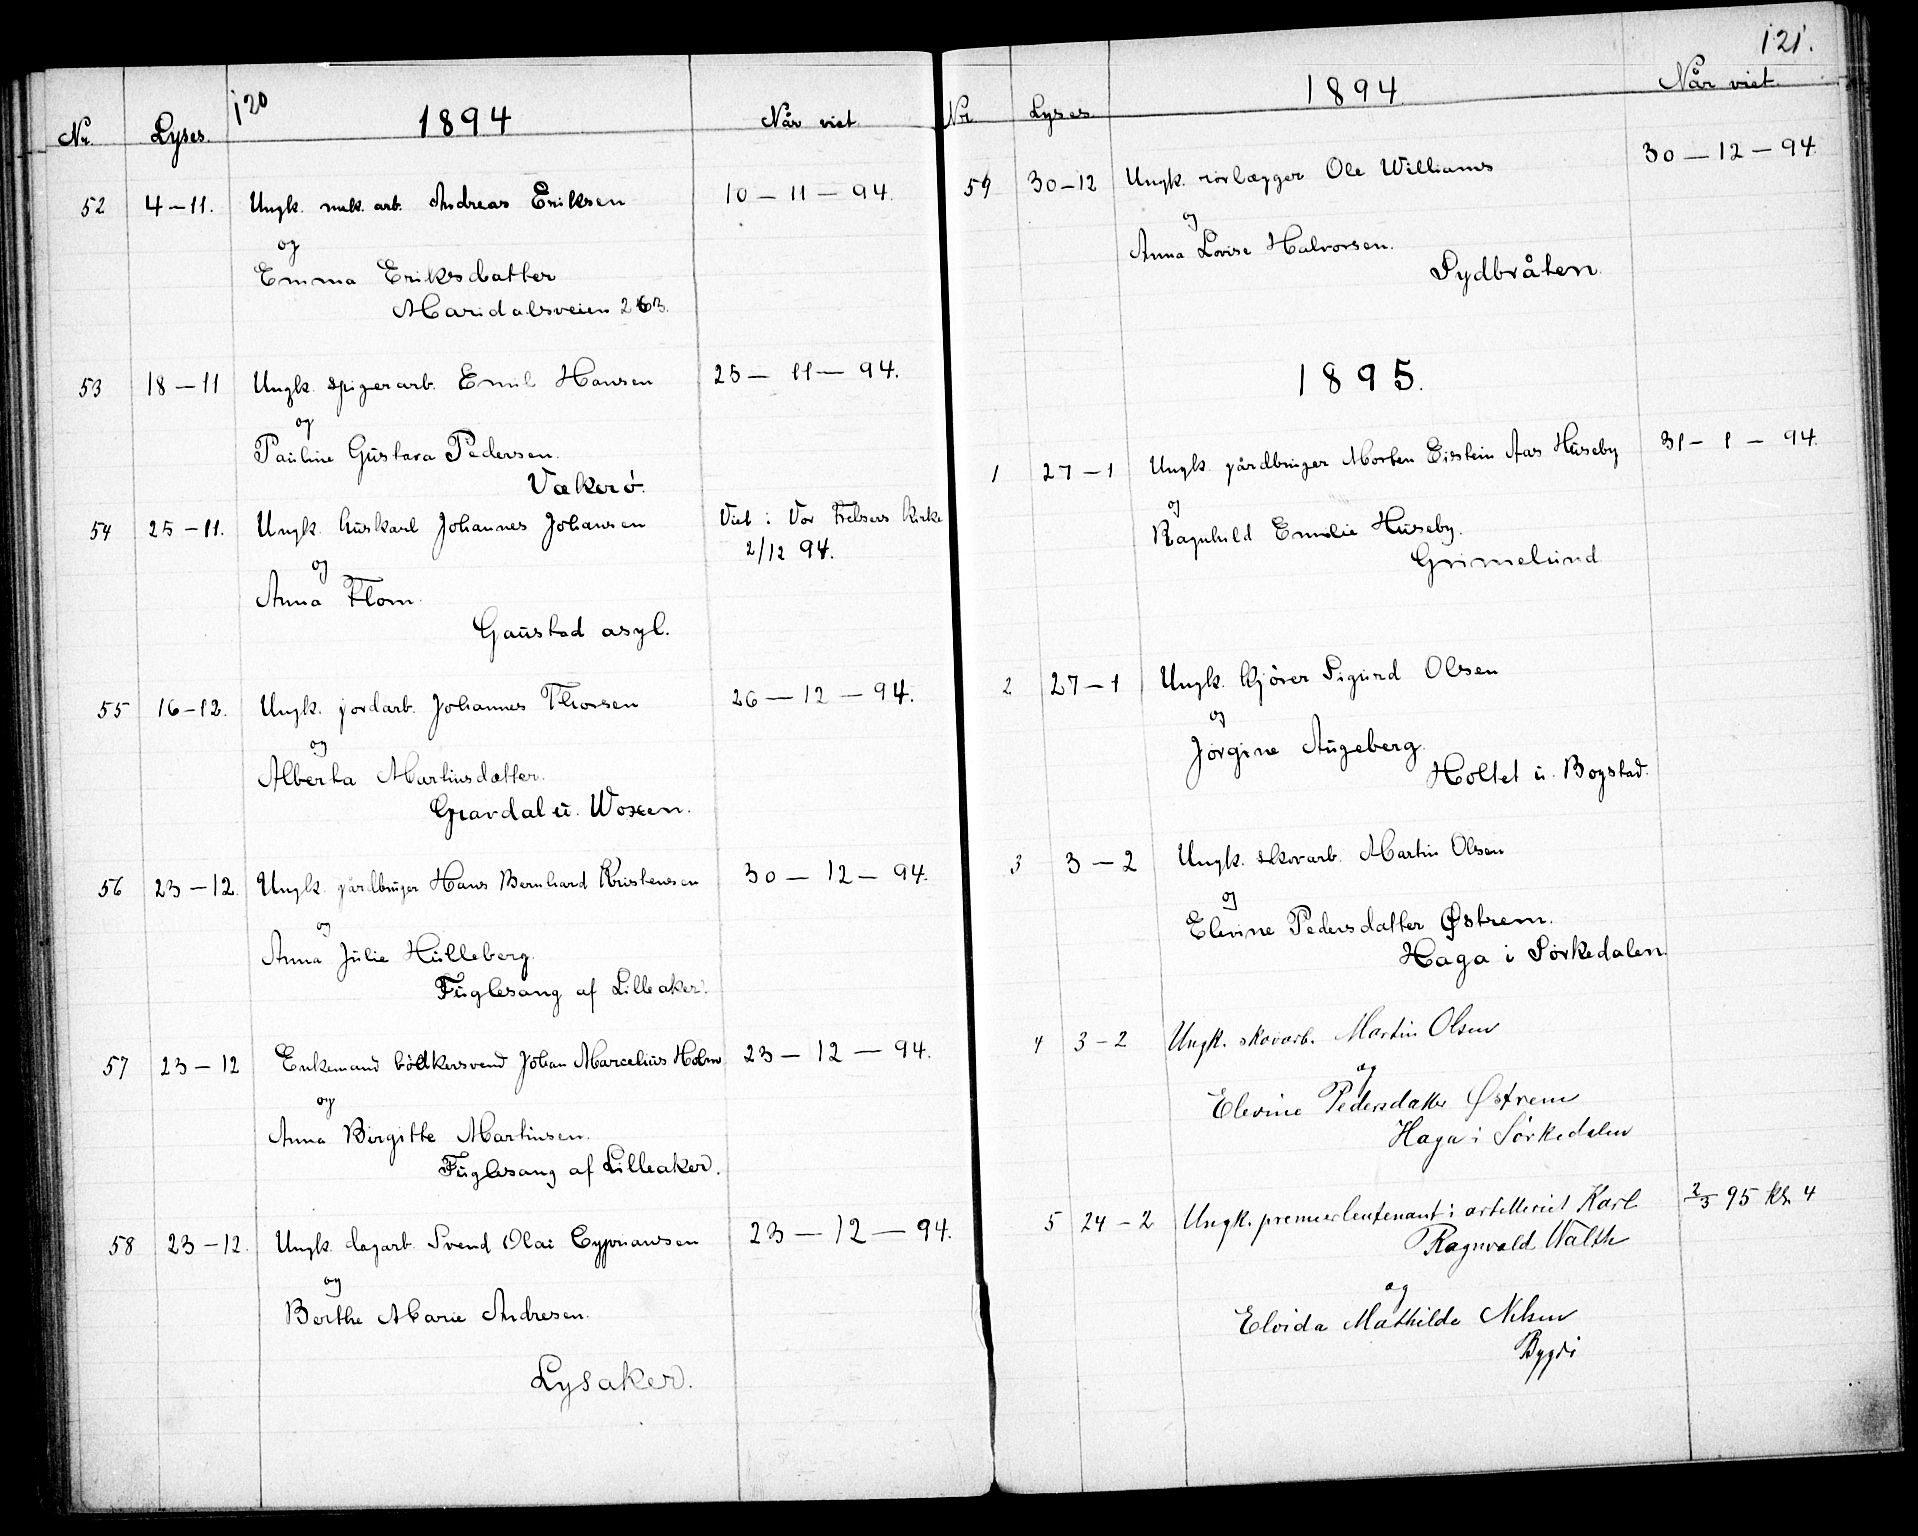 120
Nr. Lyses. 1894 Når viet.
52 4-11. Ungk. mek. arb. Andreas Eriksen 10-11-94.
og
Emma Eriksdatter
Maridalsveien 263.
53 18-11 Ungk. spigerarb. Emil Hansen 25-11-94.
og
Pauline Gustava Pedersen.
Vækerö.
54 25-11. Ungk. huskarl Johannes Johansen Viet i Vor Frelsers Kirke
2/12 94.
og
Anna Flom.
Gaustad asyl.
55 16-12. Ungk. jordarb. Johannes Thorsen 26-12-94.
og
Alberta Martinsdatter.
Grardal u. Woxen.
56 23-12. Ungk. gårdbruger Hans Bernhard Kristensen 30-12-94.
og
Anna Julie Hulleberg.
Fuglesang af Lilleaker.
57 23-12 Enkemand bödkersvend Johan Marcelius Holm 23-12-94.
og
Anna Birgitte Martinsen.
Fuglesang af Lilleaker.
58 23-12. Ungk. dagarb. Svend Olai Cyprianusen 23-12-94.
og
Berthe Marie Andresen.
Lysaker.
121.
Nr. Lyses. 1894 Når viet.
59 30-12 Ungk. rörlægger Ole Williams 30-12-94.
og
Anna Lovise Halvorsen.
Sydbråten.
1895.
1 27-1 Ungk. gårdbruger Morten Eistein Aas Huseby 31-1-94.
og
Ragnhild Emilie Huseby.
Grimelund
2 27-1 Ungk. kjörer Sigurd Olsen
og
Jörgine Augeberg.
Holtet u. Bogstad.
3 3-2 Ungk. skovarb. Martin Olsen
og
Elevine Pedersdatter Østrem.
Haga i Sörkedalen.
4 3-2 Ungk. skovarb. Martin Olsen
og
Elevine Pedersdatter Østrem
Haga i Sörkedalen
5 24-2 Ungk. premierleutenant i artilleriet Karl 2/3 95 kl. 4
Ragnvald Walth
og
Elvida Mathilde Nilsen
Bygdö